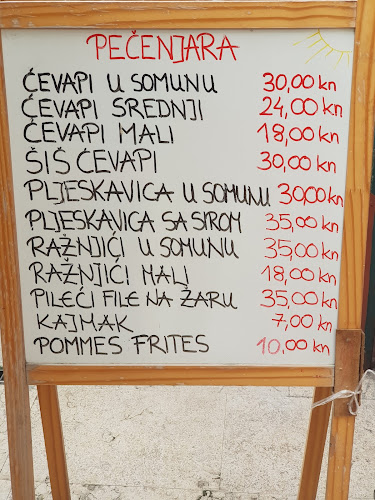 PEČENJARA
ĆEVAPI U SOMUNU 30,00 kn
ĆEVAPI SREDNJI 24,00 kn
ĆEVAPI MALI 18,00 kn
ŠIŠ ĆEVAPI 30,00 kn
PLJESKAVICA U SOMUNU 30,00 kn
PLJESKAVICA SA SIROM 35,00 kn
RAŽNJIĆI U SOMUNU 35,00 kn
RAŽNJIĆI MALI 18,00 kn
PILEĆI FILE NA ŽARU 35,00 kn
KAJMAK 7,00 kn
POMMES FRITES 10,00 kn